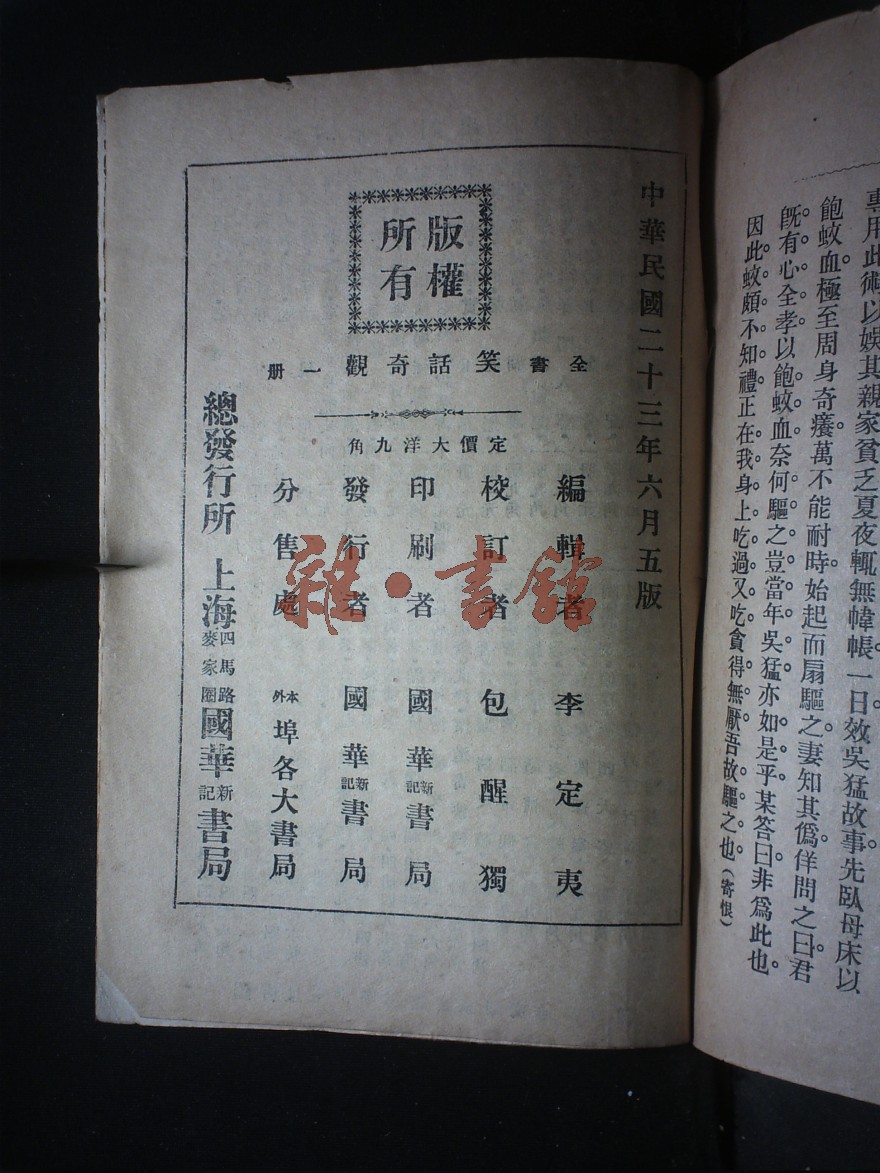 專用此術以娛其親家貧乏夏夜輒無幃帳一日效吳猛故事先臥母床以
飽蚊血極至周身奇癢萬不能耐時始起而扇驅之妻知其僞佯問之曰君
旣有心全孝以飽蚊血奈何驅之豈當年吳猛亦如是乎某答曰非爲此也
因此蚊頗不知禮正在我身上吃過又吃貪得無厭吾故驅之也(寄恨)
中華民國二十三年六月五版
版權所有
全書笑話奇觀一册
定價大洋九角
編輯者 李定夷
校訂者 包醒獨
印刷者 國華新記書局
發行者 國華新記書局
分售處 本外埠各大書局
總發行所 上海四馬路麥家圈國華新記書局
雜·書館